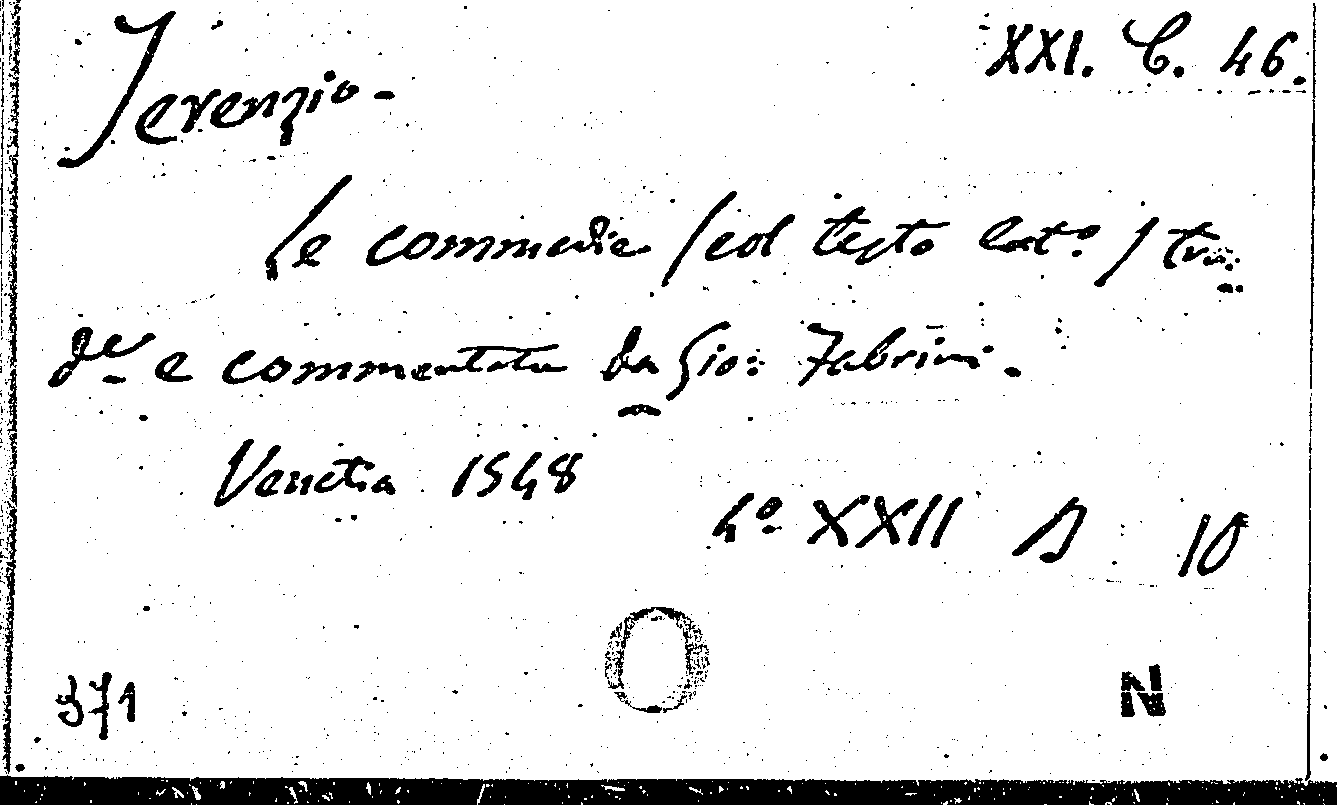 XXI. C. 46.
Terenzio -
Le commedie / col testo lat.º / tra=
d.e e commentate da Gio: Fabrini.
Venetia 1548
4º XXII D 10
371
N